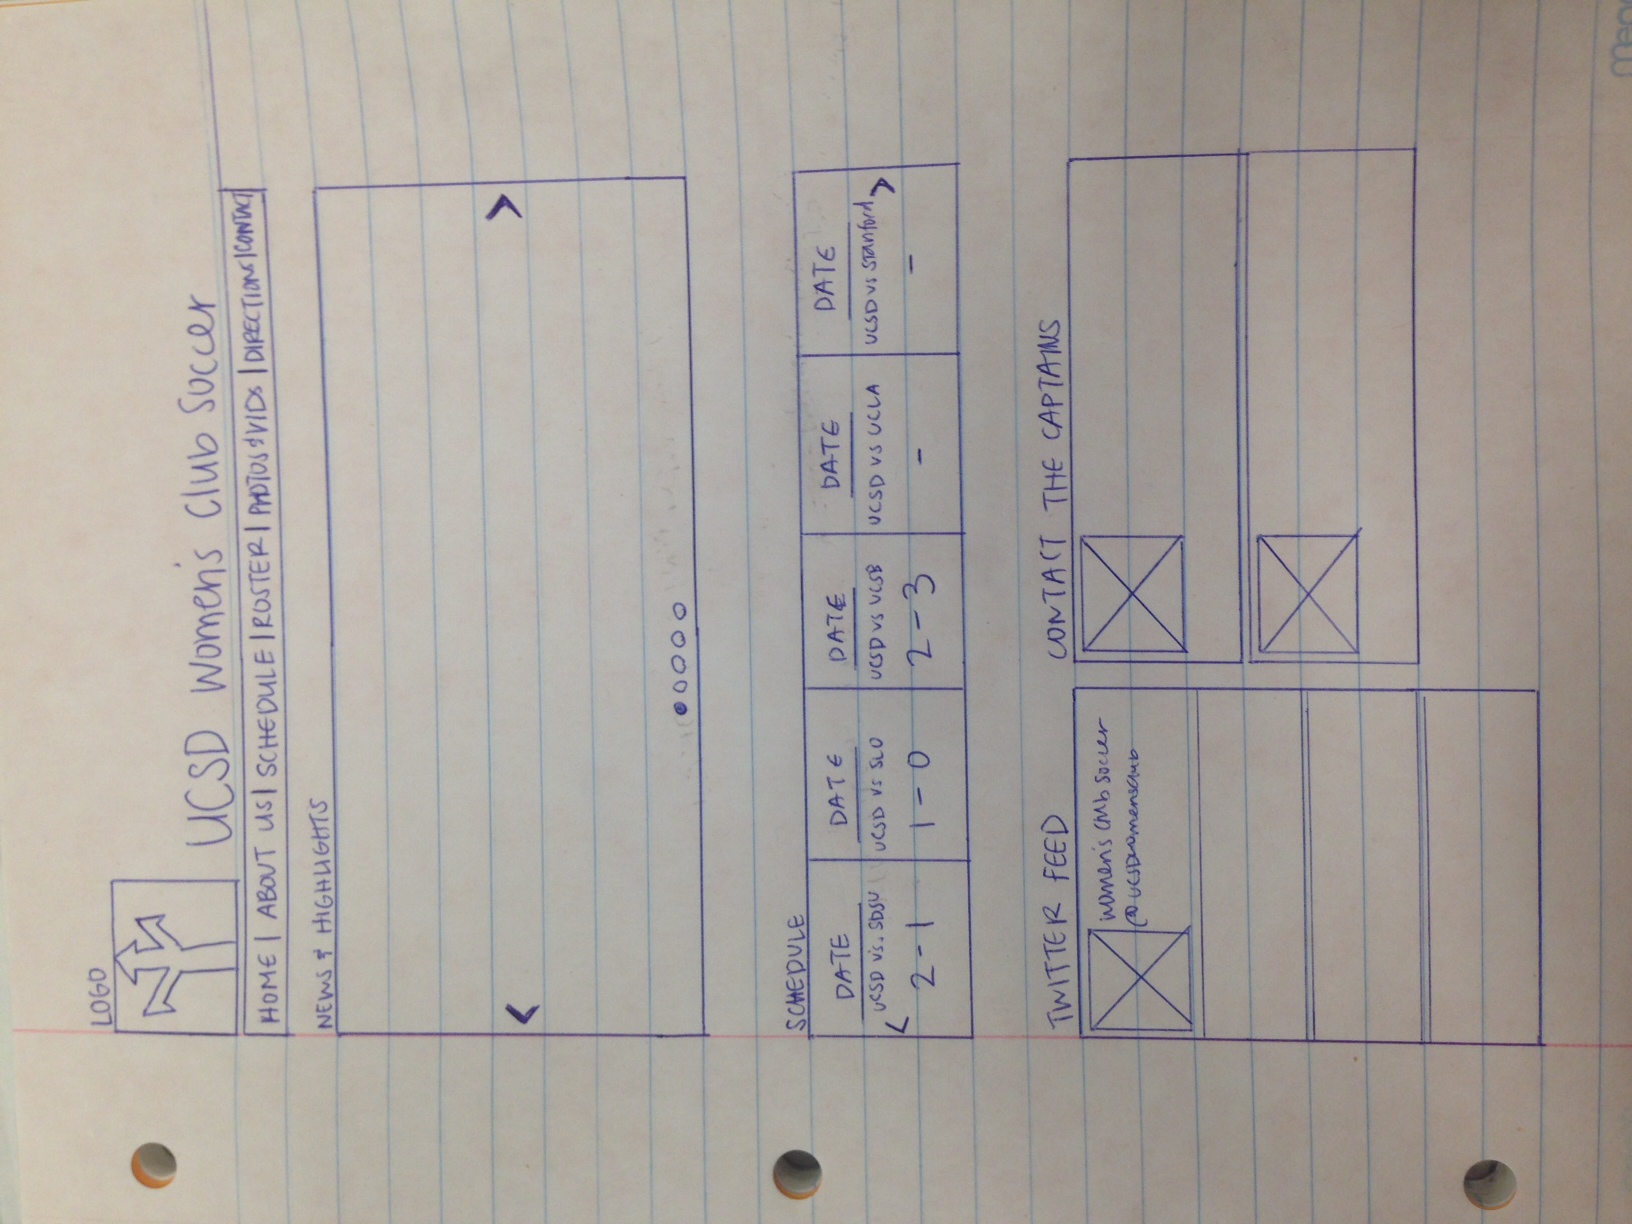 LOGO
UCSD Women's Club Soccer
HOME | ABOUT US | SCHEDULE | ROSTER | PHOTOS & VIDS | DIRECTIONS | CONTACT
NEWS & HIGHLIGHTS
< >
SCHEDULE
DATE DATE DATE DATE DATE
UCSD vs. SDSU UCSD vs SLO UCSD vs UCSB UCSD vs UCLA UCSD vs Stanford
< 2-1 1-0 2-3 - - >
TWITTER FEED CONTACT THE CAPTAINS
women's club soccer
@UCSDwomensclub